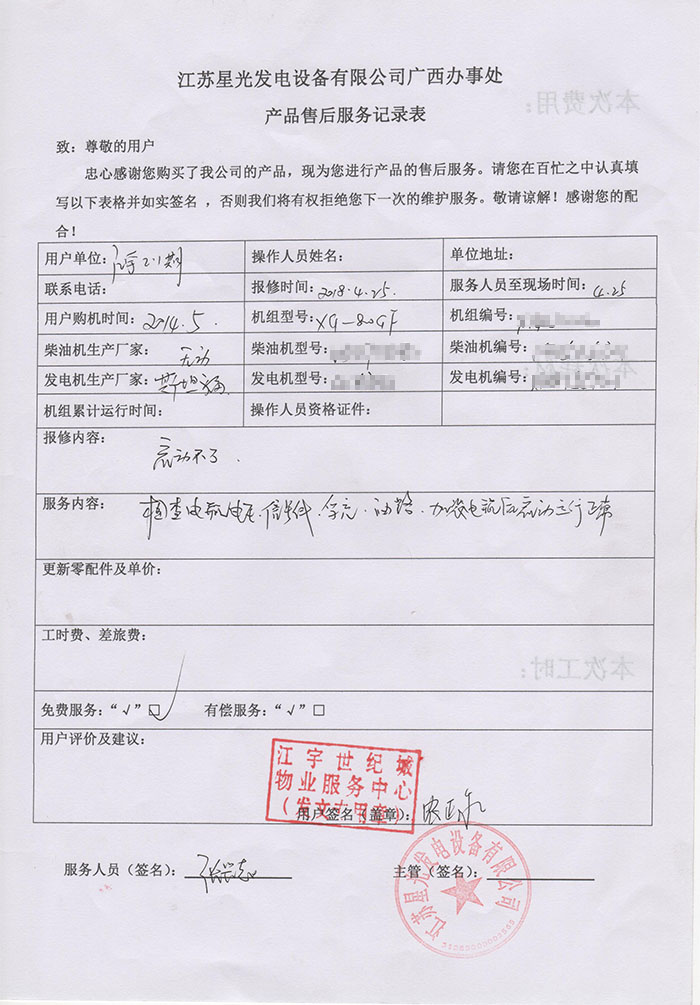 江苏星光发电设备有限公司广西办事处
产品售后服务记录表
致：尊敬的用户
忠心感谢您购买了我公司的产品，现为您进行产品的售后服务。请您在百忙之中认真填
写以下表格并如实签名，否则我们将有权拒绝您下一次的维护服务。敬请谅解！感谢您的配
合！
用户单位： 操作人员姓名： 单位地址：
联系电话： 报修时间：2018.4.25. 服务人员至现场时间：4.25
用户购机时间：2014.5. 机组型号：XG-80GF 机组编号：
柴油机生产厂家：无动 柴油机型号： 柴油机编号：
发电机生产厂家：斯坦福 发电机型号： 发电机编号：
机组累计运行时间： 操作人员资格证件：
报修内容：
启动不了.
服务内容：
检查电瓶电压.信号线.油路.加装电瓶后启动运行正常
更新零配件及单价：
工时费、差旅费：
免费服务："√"□ 有偿服务："√"□
用户评价及建议：
江宇世纪城
物业服务中心
（发文专用章）
用户签名（盖章）：
服务人员（签名）： 主管（签名）：
江苏星光发电设备有限公司
本次费用：
本次耗材：
本次工时：